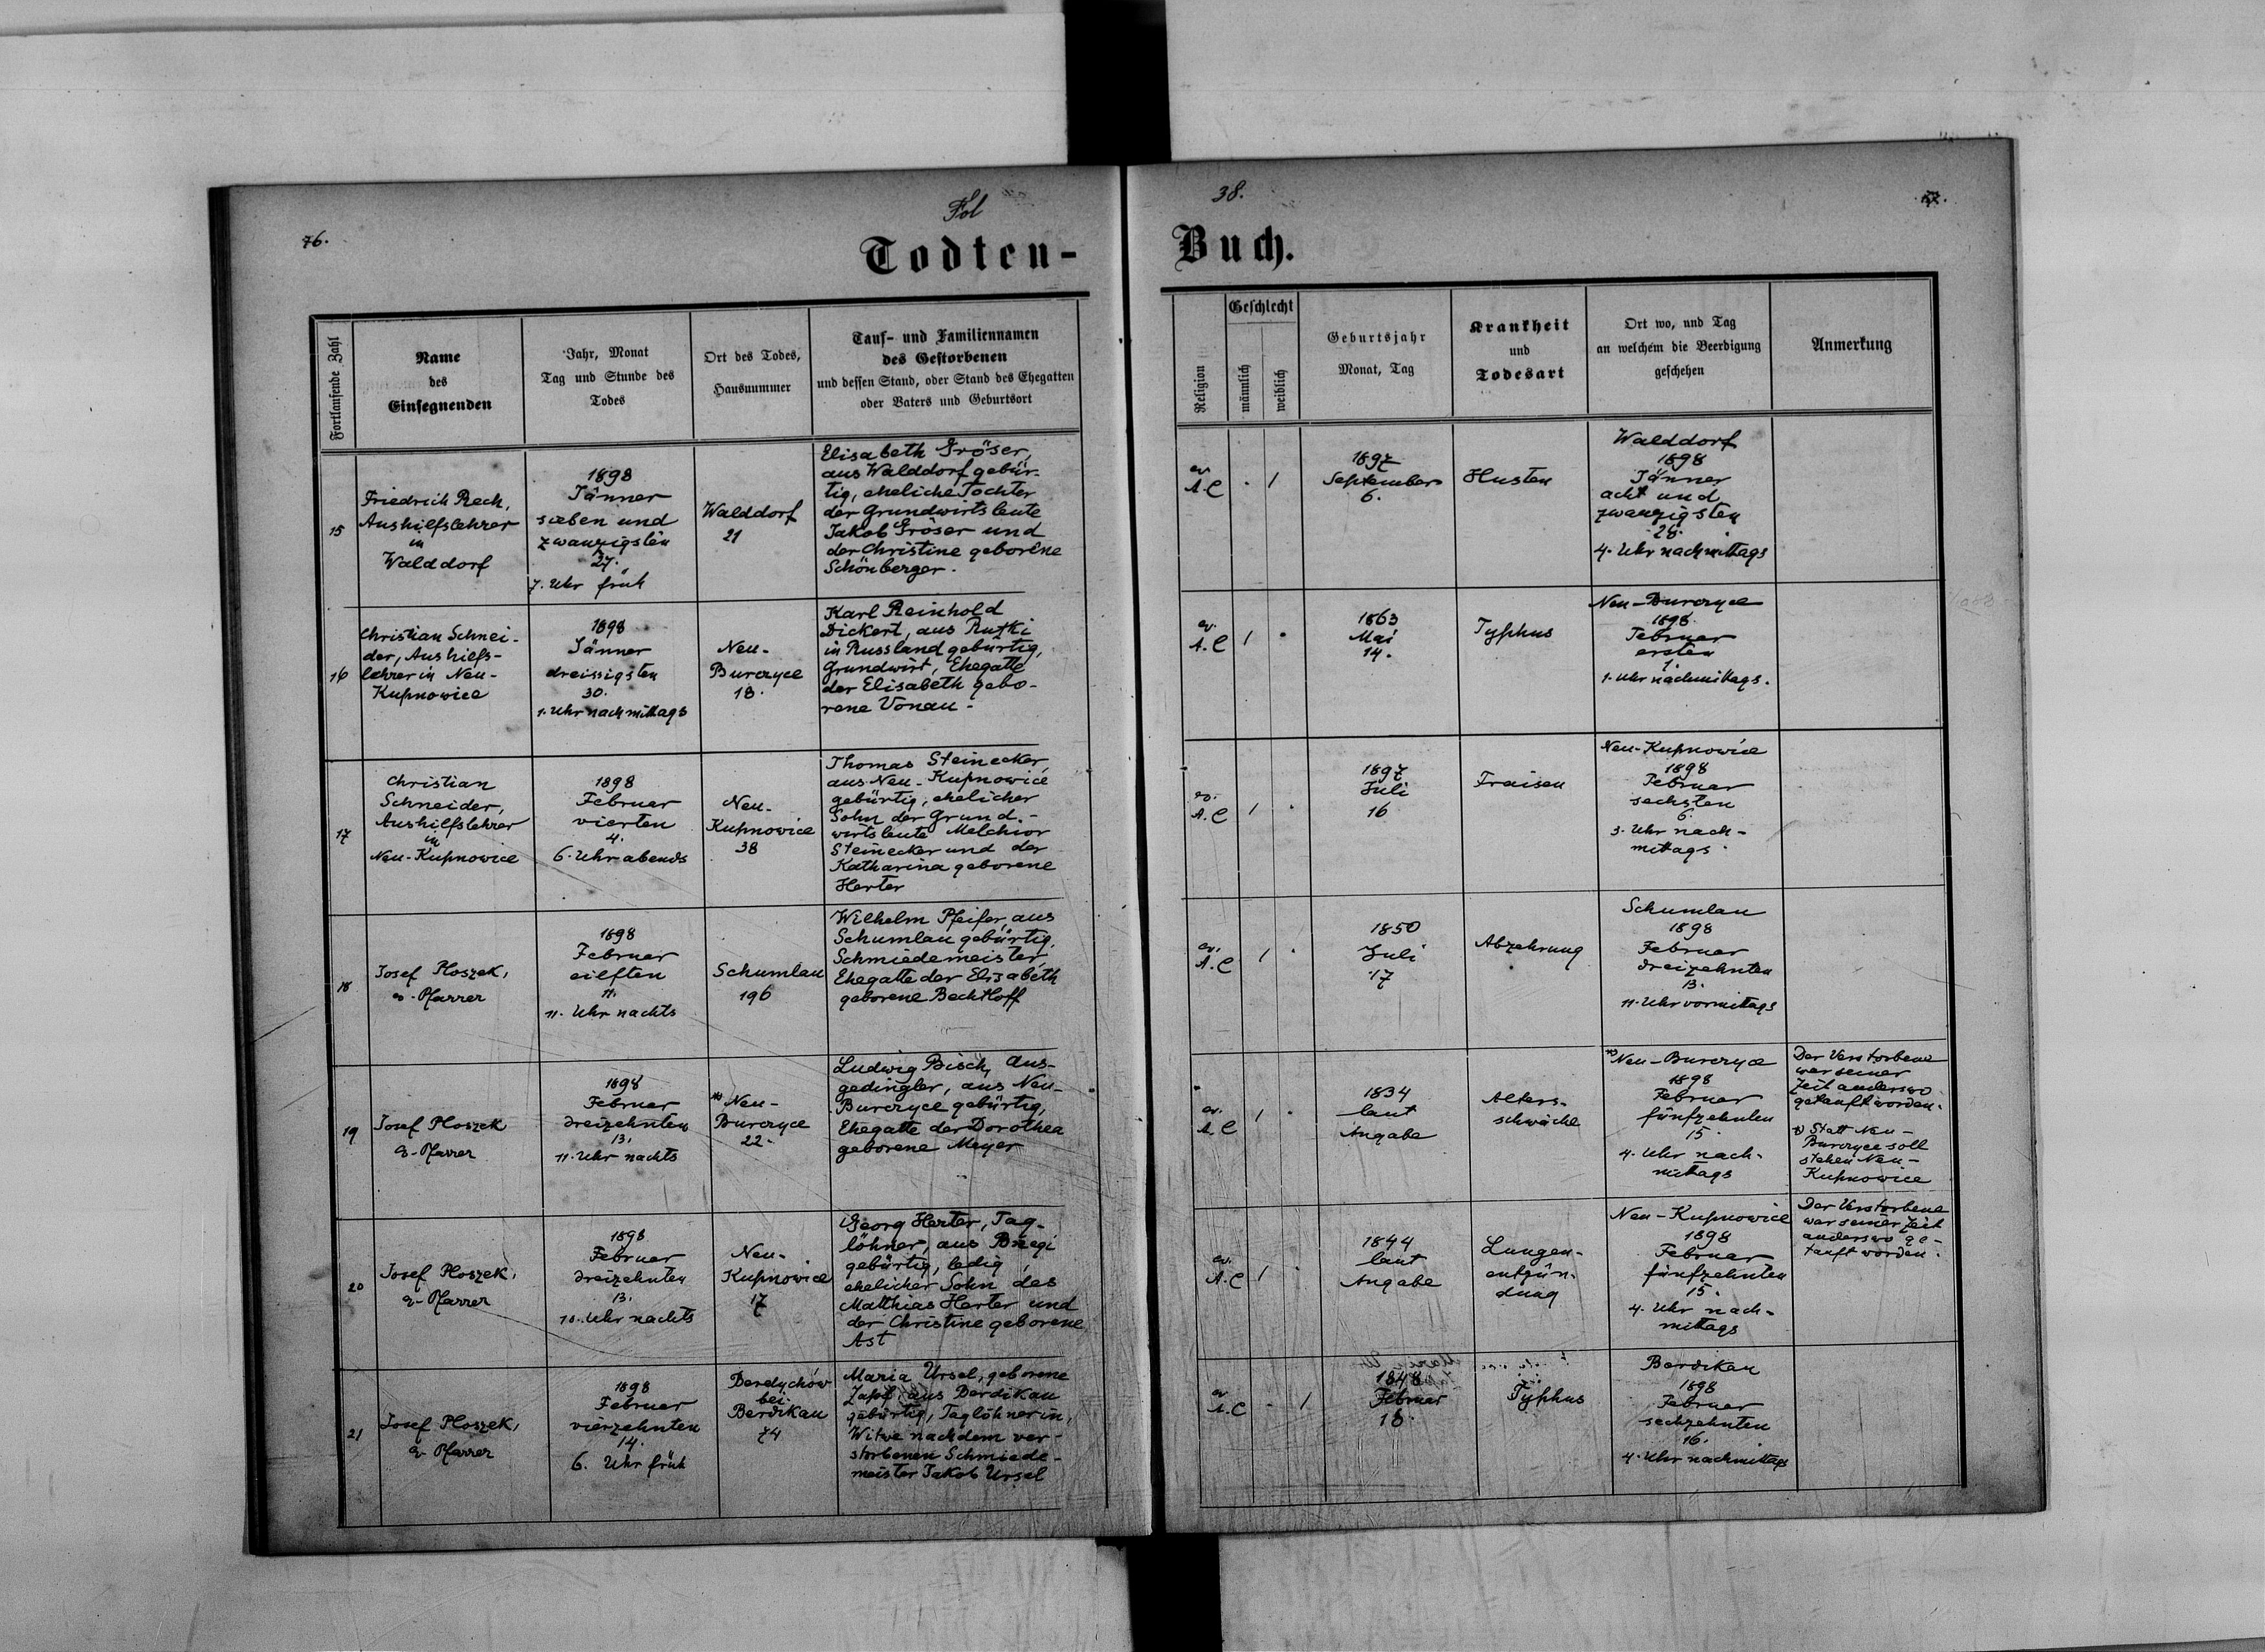 76.
Fol
38.
77.
Todten-
Buch.
Fortlaufende Zahl
Name
des
Einsegnenden
Jahr, Monat
Tag und Stunde des
Todes
Ort des Todes,
Hausnummer
Tauf- und Familiennamen
des Gestorbenen
und dessen Stand, oder Stand des Ehegatten
oder Vaters und Geburtsort
Religion
Geschlecht
männlich
weiblich
Geburtsjahr
Monat, Tag
Krankheit
und
Todesart
Ort wo, und Tag
an welchem die Beerdigung
geschehen
Anmerkung
15
Friedrich Rech,
Aushilfslehrer
in
Walddorf
1898
Jänner
sieben und
zwanzigsten
27.
7. Uhr früh
Walddorf
21
Elisabeth Gröser,
aus Walddorf gebür-
tig, eheliche Tochter
der Grundwirtsleute
Jakob Gröser und
der Christine geborene
Schönberger.
ev.
A.C
1
1897
September
6.
Husten
Walddorf
1898
Jänner
acht und
zwanzigsten
28.
4. Uhr nachmittags
16
Christian Schnei-
der, Aushilfs-
lehrer in Neu-
Kupnowice
1898
Jänner
dreissigsten
30.
1. Uhr nachmittags
Neu-
Burczyce
18.
Karl Reinhold
Dickert, aus Rutki
in Russland gebürtig,
Grundwirt, Ehegatte
der Elisabeth gebo-
rene Vonau.
ev.
A.C
1
1863
Mai
14.
Typhus
Neu-Burczyce
1898
Februar
ersten
1.
1. Uhr nachmittags.
17
Christian
Schneider,
Aushilfslehrer
in
Neu-Kupnowice
1898
Februar
vierten
4.
6. Uhr abends
Neu-
Kupnowice
38
Thomas Steinecker,
aus Neu-Kupnowice
gebürtig, ehelicher
Sohn der Grund-
wirtsleute Melchior
Steinecker und der
Katharina geborene
Herter
ev.
A.C
1
1897
Juli
16
Fraisen
Neu-Kupnowice
1898
Februar
sechsten
6.
3. Uhr nach-
mittags
18
Josef Ploszek,
ev. Pfarrer
1898
Februar
eilften
11.
11. Uhr nachts
Schumlau
196
Wilhelm Pfeifer, aus
Schumlau gebürtig,
Schmiedemeister,
Ehegatte der Elisabeth
geborene Bechtloff
ev.
A.C
1
1850
Juli
17
Abzehrung
Schumlau
1898
Februar
dreizehnten
13.
11. Uhr vormittags
19
Josef Ploszek
ev. Pfarrer
1898
Februar
dreizehnten
13.
11. Uhr nachts
*) Neu-
Burczyce
22.
Ludwig Bisch, Aus-
gedingler, aus Neu-
Burczyce gebürtig,
Ehegatte der Dorothea
geborene Meyer
ev.
A.C
1
1834
laut
Angabe
Alters-
schwäche
*) Neu-Burczyce
1898
Februar
fünfzehnten
15.
4. Uhr nach-
mittags
Der Verstorbene
war seiner
Zeit anderswo
getauft worden.
*) Statt Neu-
Burczyce soll
stehen Neu-
Kupnowice
20
Josef Ploszek,
ev. Pfarrer
1898
Februar
dreizehnten
13.
Uhr nachts
Neu-
Kupnowice
17
Georg Herter, Tag-
löhner, aus Bregi
gebürtig, ledig,
ehelicher Sohn des
Matthias Herter und
der Christine geborene
Ast
ev.
A.C
1
1844
laut
Angabe
Lungen-
entzün-
dung
Neu-Kupnowice
1898
Februar
fünfzehnten
15.
4. Uhr nach-
mittags
Der Verstorbene
war seiner Zeit
anderswo ge-
tauft worden.
21
Josef Ploszek,
ev. Pfarrer
1898
Februar
vierzehnten
14.
6. Uhr früh
Berdychów
bei
Berdikau
74
Maria Ursel, geborene
Zapf, aus Berdikau
gebürtig, Taglöhnerin,
Witwe nach dem ver-
storbenen Schmiede-
meister Jakob Ursel
ev.
A.C
1
1848
Februar
18.
Typhus
Berdikau
1898
Februar
sechzehnten
16.
4. Uhr nachmittags